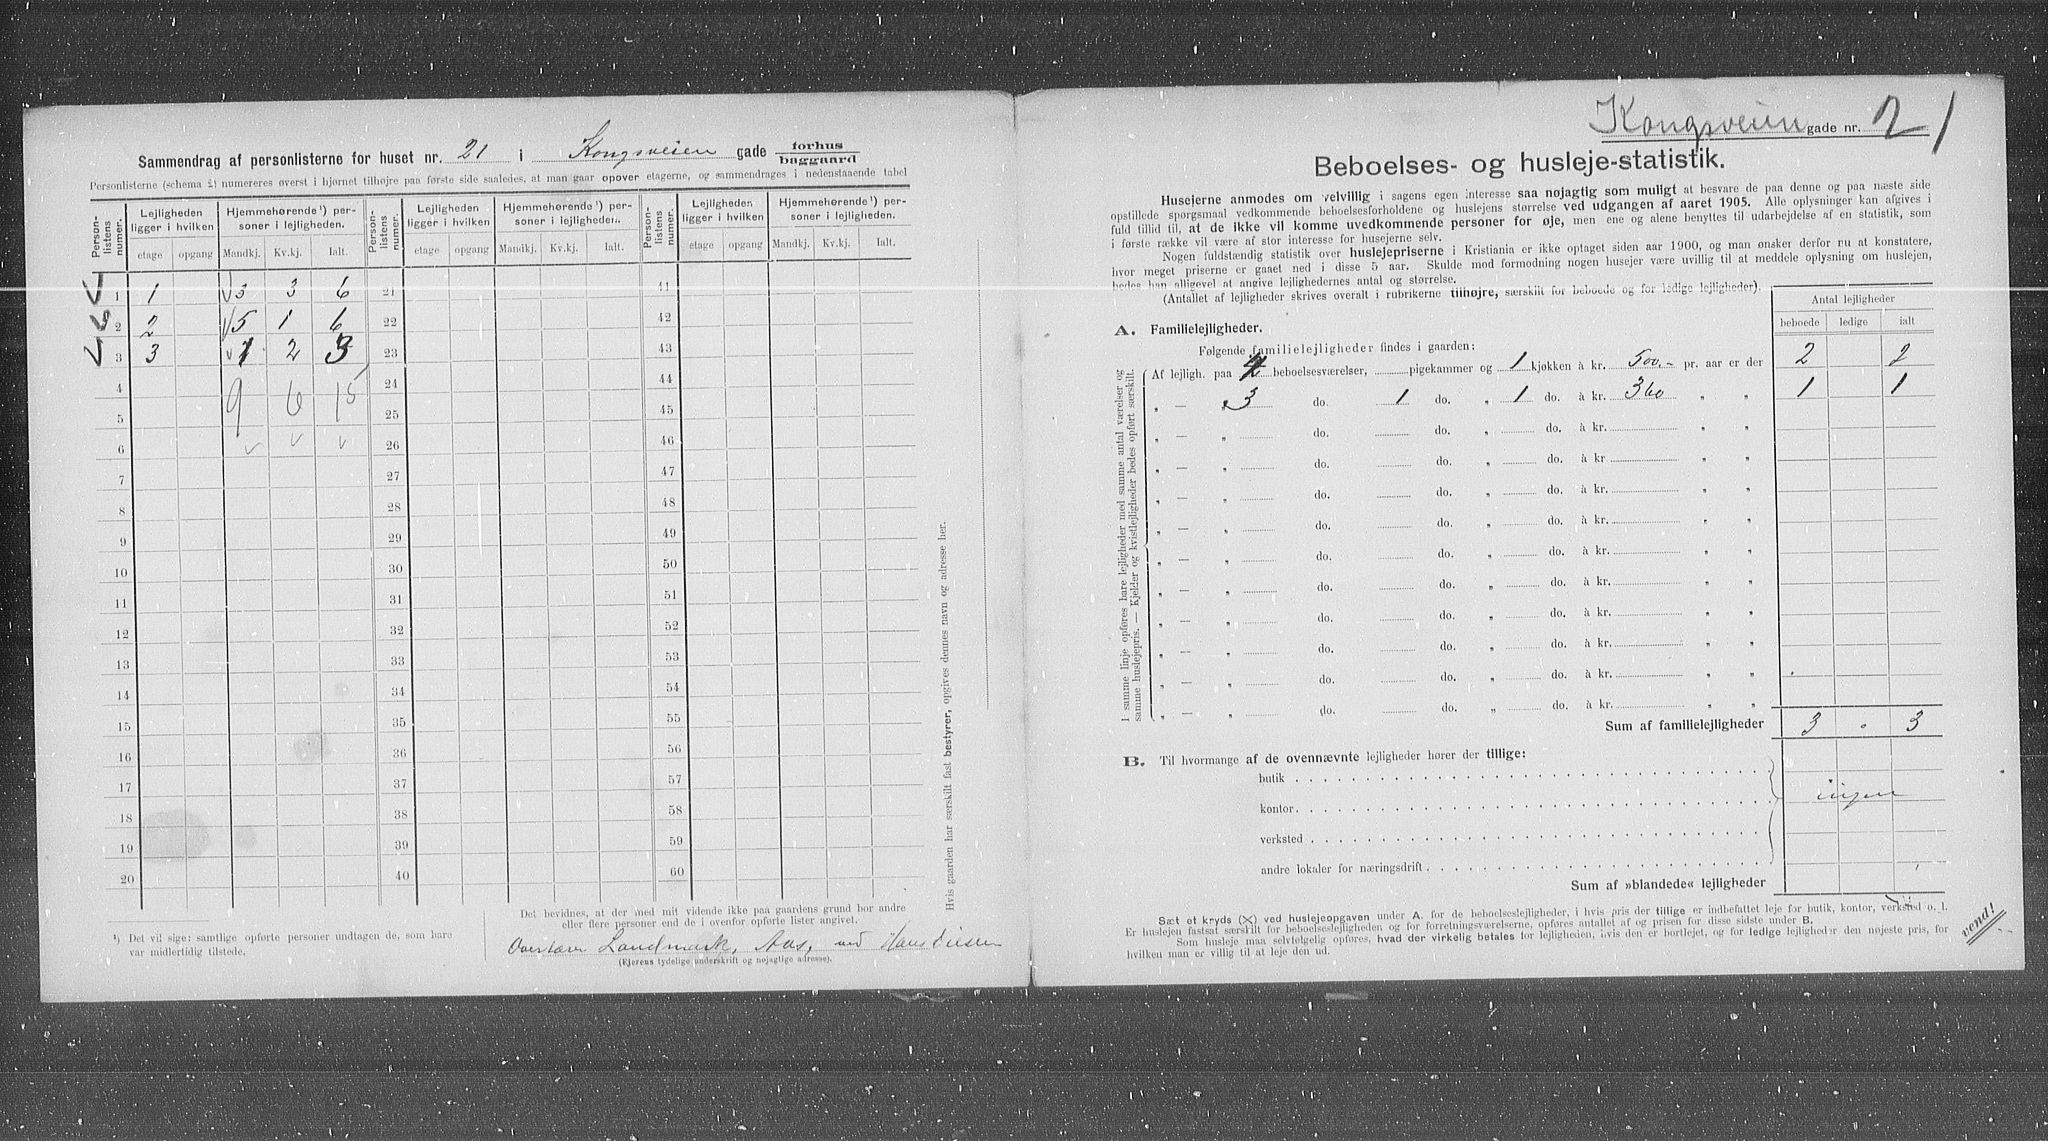 Sammendrag af personlisterne for huset nr. 21 i Kongsveien gade forhus baggaard
Personlisterne (schema 2) numereres øverst i hjørnet tilhøjre paa første side saaledes, at man gaar opover etagerne, og sammendrages i nedenstaaende tabel
Person-listens numer. Lejligheden ligger i hvilken Hjemmehørende ¹) per-soner i lejligheden. Person-listens numer. Lejligheden ligger i hvilken Hjemmehørende ¹) per-soner i lejligheden. Person-listens numer. Lejligheden ligger i hvilken Hjemmehørende ¹) per-soner i lejligheden.
etage opgang Mandkj. Kv.kj. Ialt. etage opgang Mandkj. Kv.kj. Ialt. etage opgang Mandkj. Kv.kj. Ialt.
1 1 3 3 6 21 41
2 2 5 1 6 22 42
3 3 1 2 3 23 43
4 9 6 15 24 44
5 25 45
6 26 46
7 27 47
8 28 48
9 29 49
10 30 50
11 31 51
12 32 52
13 33 53
14 34 54
15 35 55
16 36 56
17 37 57
18 38 58
19 39 59
20 40 60
Hvis gaarden har særskilt fast bestyrer, opgives dennes navn og adresse her.
¹) Det vil sige: samtlige opførte personer undtagen de, som bare
var midlertidig tilstede.
Det bevidnes, at der med mit vidende ikke paa gaardens grund bor andre
eller flere personer end de i ovenfor opførte lister angivet.
Landmark, Aas, ved
(Ejerens tydelige underskrift og nøjagtige adresse).
Kongsveien gade nr. 21
Beboelses- og husleje-statistik.
Husejerne anmodes om velvillig i sagens egen interesse saa nøjagtig som muligt at besvare de paa denne og paa næste side
opstillede spørgsmaal vedkommende beboelsesforholdene og huslejens størrelse ved udgangen af aaret 1905. Alle oplysninger kan afgives i
fuld tillid til, at de ikke vil komme uvedkommende personer for øje, men ene og alene benyttes til udarbejdelse af en statistik, som
i første række vil være af stor interesse for husejerne selv.
Nogen fuldstændig statistik over huslejepriserne i Kristiania er ikke optaget siden aar 1900, og man ønsker derfor nu at konstatere,
hvor meget priserne er gaaet ned i disse 5 aar. Skulde mod formodning nogen husejer være uvillig til at meddele oplysning om huslejen,
bedes han alligevel at angive lejlighedernes antal og størrelse.
(Antallet af lejligheder skrives overalt i rubrikerne tilhøjre, særskilt for beboede og for ledige lejligheder).
Antal lejligheder
beboede ledige ialt
A. Familielejligheder.
Følgende familielejligheder findes i gaarden:
I samme linje opføres bare lejligheder med samme antal værelser og
samme huslejepris. — Kjelder og kvistlejligheder bedes opført særskilt.
Af lejligh. paa beboelsesværelser, pigekammer og 1 kjøkken à kr. 500.- pr. aar er der 2 2
„ — „ 3 do. 1 do. „ 1 do. à kr. 360 „ „ 1 1
„ — „ do. do. „ do. à kr. „ „
„ — „ do. do. „ do. à kr. „ „
„ — „ do. do. „ do. à kr. „ „
„ — „ do. do. „ do. à kr. „ „
„ — „ do. do. „ do. à kr. „ „
„ — „ do. do. „ do. à kr. „ „
„ — „ do. do. „ do. à kr. „ „
„ — „ do. do. „ do. à kr. „ „
„ — „ do. do. „ do. à kr. „ „
„ — „ do. do. „ do. à kr. „ „
Sum af familielejligheder 3 . 3
B. Til hvormange af de ovennævnte lejligheder hører der tillige:
butik
kontor ingen
verksted
andre lokaler for næringsdrift
Sum af »blandede« lejligheder
Sæt et kryds (X) ved huslejeopgaven under A. for de beboelseslejligheder, i hvis pris der tillige er indbefattet leje for butik, kontor, verksted o. l.
Er huslejen fastsat særskilt for beboelseslejligheden og for forretningsværelserne, opføres antallet af og prisen for disse sidste under B.
Som husleje maa selvfølgelig opføres, hvad der virkelig betales for lejligheden, hvis den er bortlejet, og for ledige lejligheder den nøjeste pris, for
hvilken man er villig til at leje den ud.
vend!